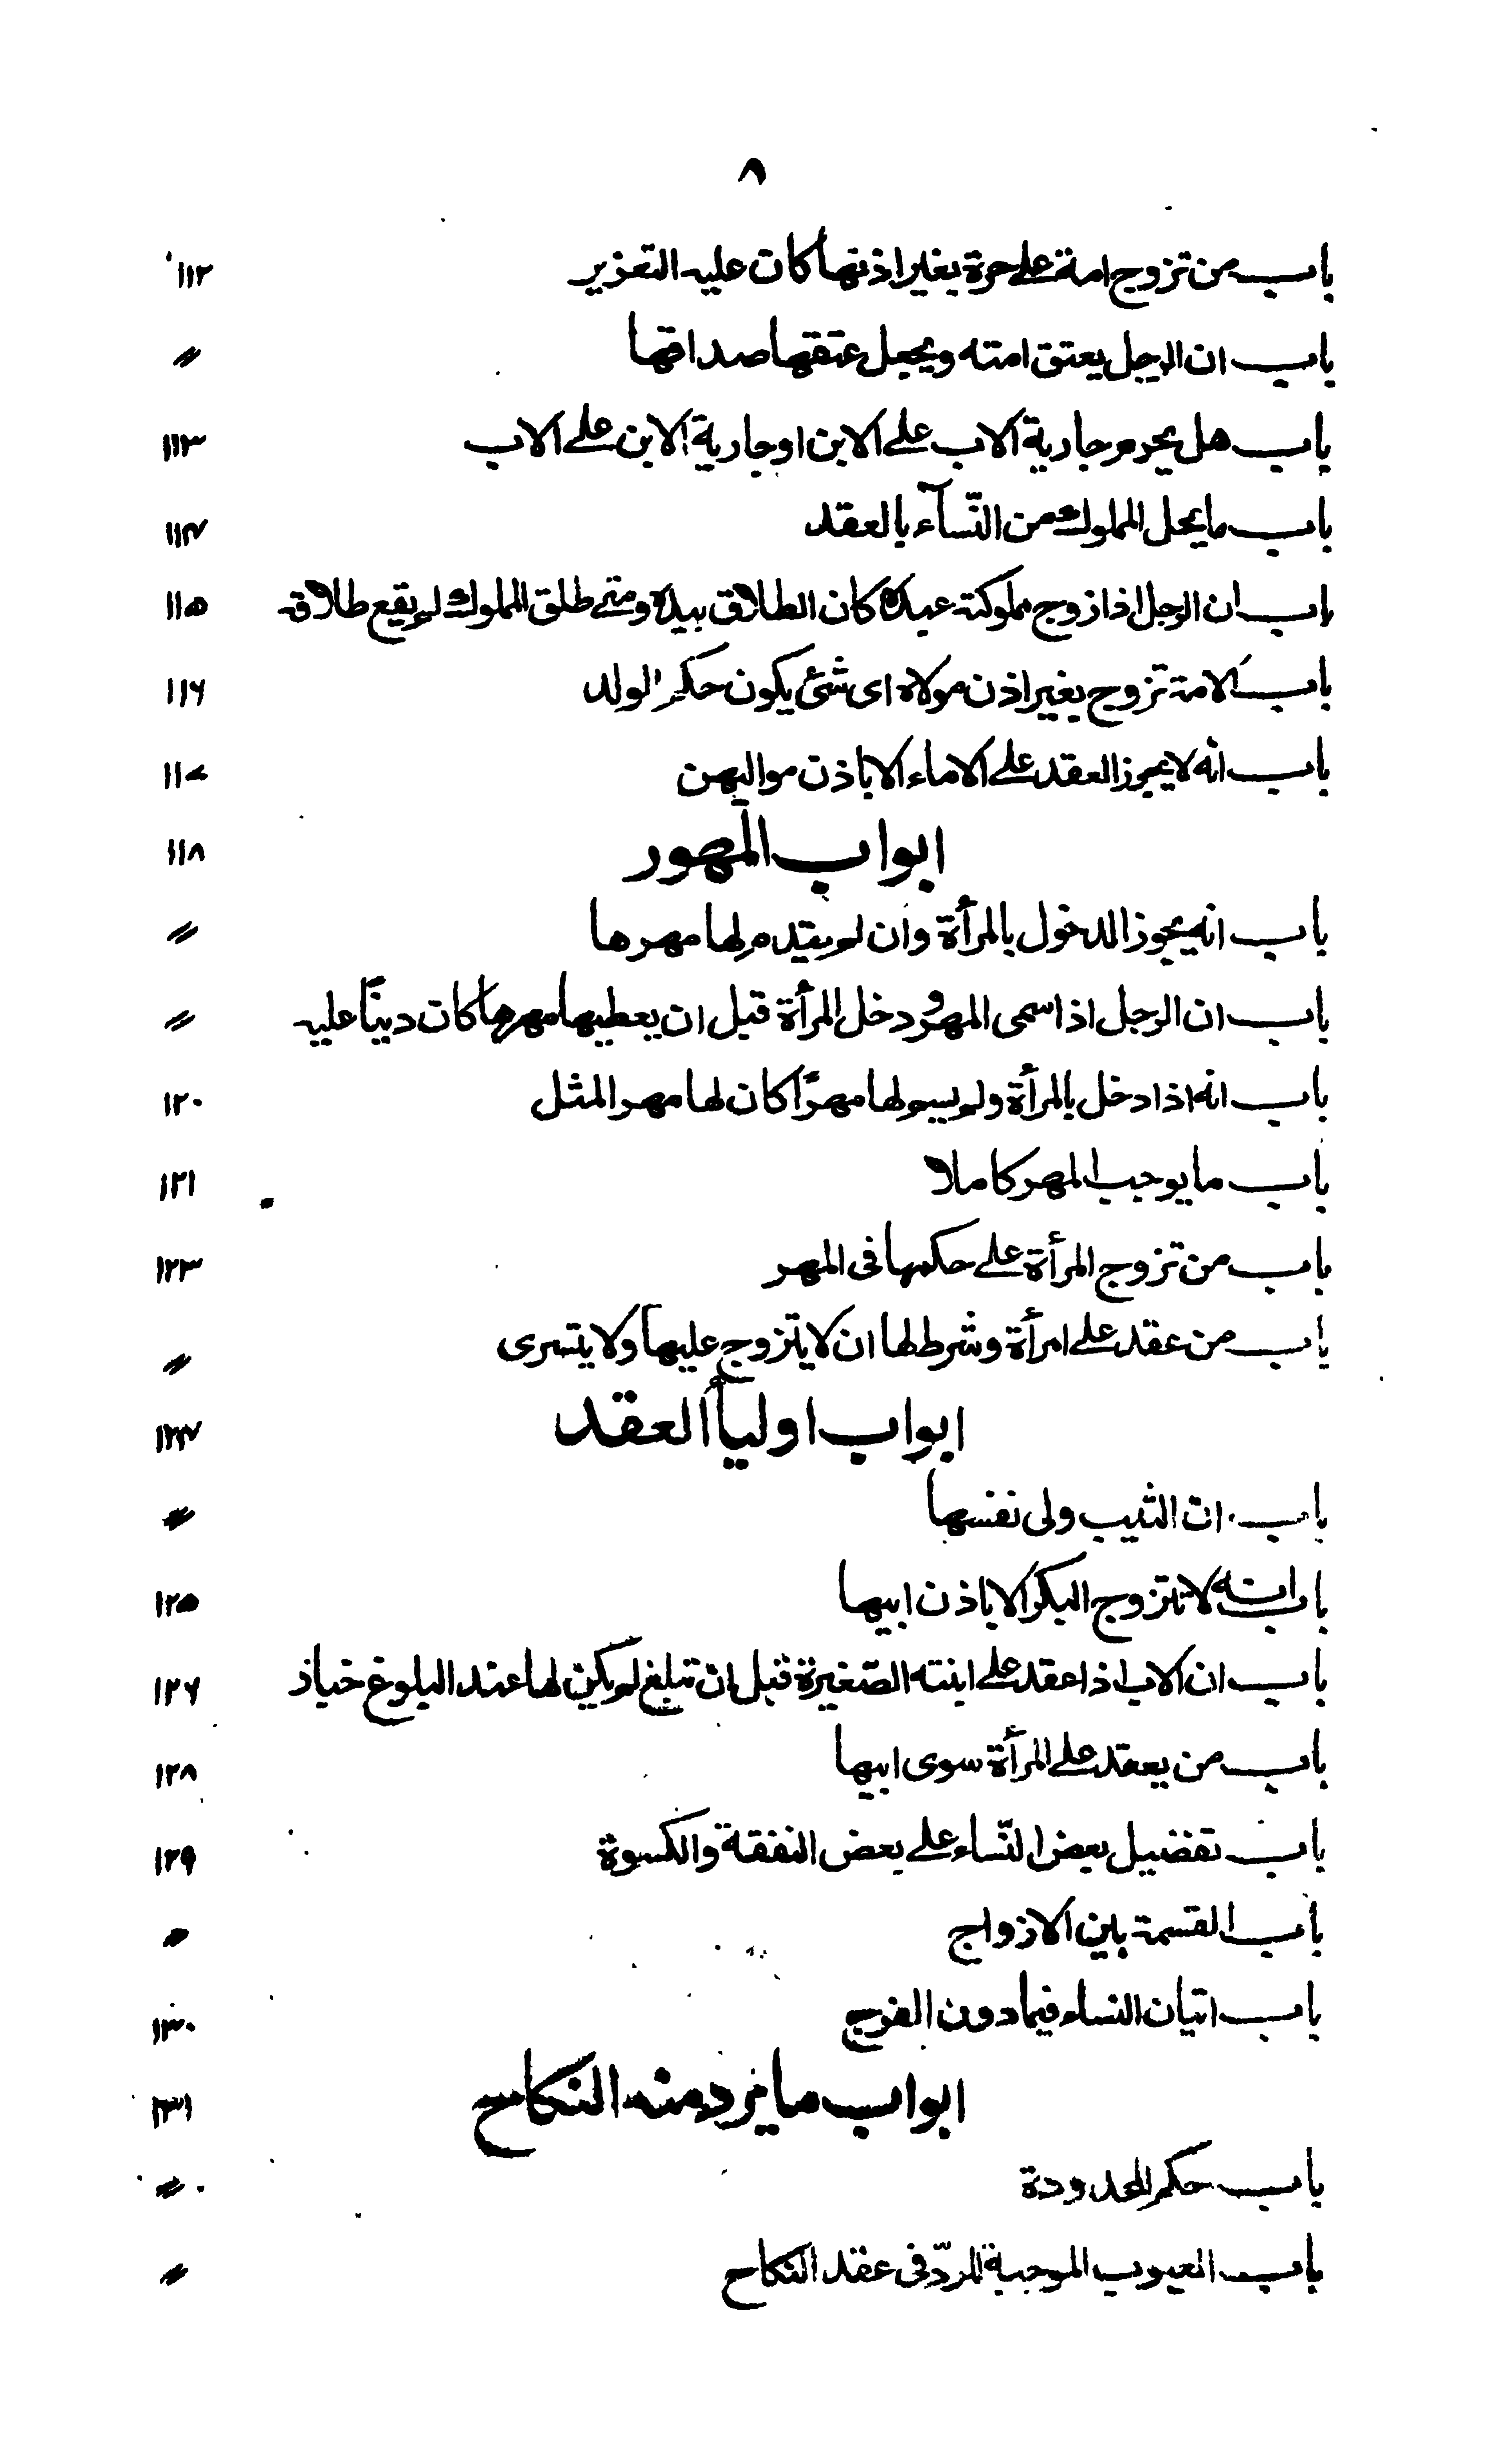 ٨
باب من تزوج امة على حرة بغير اذنها كان عليه التعزير ١١٢
باب ان الرجل يعتق امته ويجعل عتقها صداقها 〃
باب هل يحرم جارية الاب على الابن او جارية الابن على الاب ١١٣
باب ما يحل المملوك من النّسآء بالعقد ١١٤
باب ان الرجل اذا زوج مملوكته عبده كان الطلاق بيده ومتى طلق المملوك لم يقع طلاقه ١١٥
باب الامة تزوج بغير اذن مولاه اى شئ يكون حكم الولد ١١٦
باب انه لا يجوز العقد على الاماء الا باذن مواليهن ١١٧
ابواب المهور ١١٨
باب انه يجوز الدخول بالمرأة وان لم يقدم لها مهرها 〃
باب ان الرجل اذا سمى المهر ودخل المرأة قبل ان يعطيها مهرها كان دينًا عليه 〃
باب انه اذا دخل بالمرأة ولم يسم لها مهرًا كان لها مهر المثل ١٢٠
باب ما يوجب المهر كاملا ١٢١
باب من تزوج المرأة على حكمها فى المهر ١٢٣
باب من عقد على امرأة وشرط لها ان لا يتزوج عليها ولا يتسرى 〃
ابواب اوليأ العقد ١٢٤
باب ان الثيب ولى نفسها 〃
باب انه لا تتزوج البكر الا باذن ابيها ١٢٥
باب ان الاب اذا عقد على ابنته الصّغيرة قبل ان تبلغ لم يكن لها عند البلوغ خيار ١٢٦
باب من يعقد على المرأة سوى ابيها ١٢٨
باب تفضيل بعض النّساء على بعض النفقة والكسوة ١٢٩
باب القسمة بين الازواج 〃
باب اتيان النساء فيما دون الفرج ١٣٠
ابواب ما يرد منه النكاح ١٣١
باب حكم المحدودة 〃
باب العيوب الموجبة للردّ فى عقد النكاح 〃